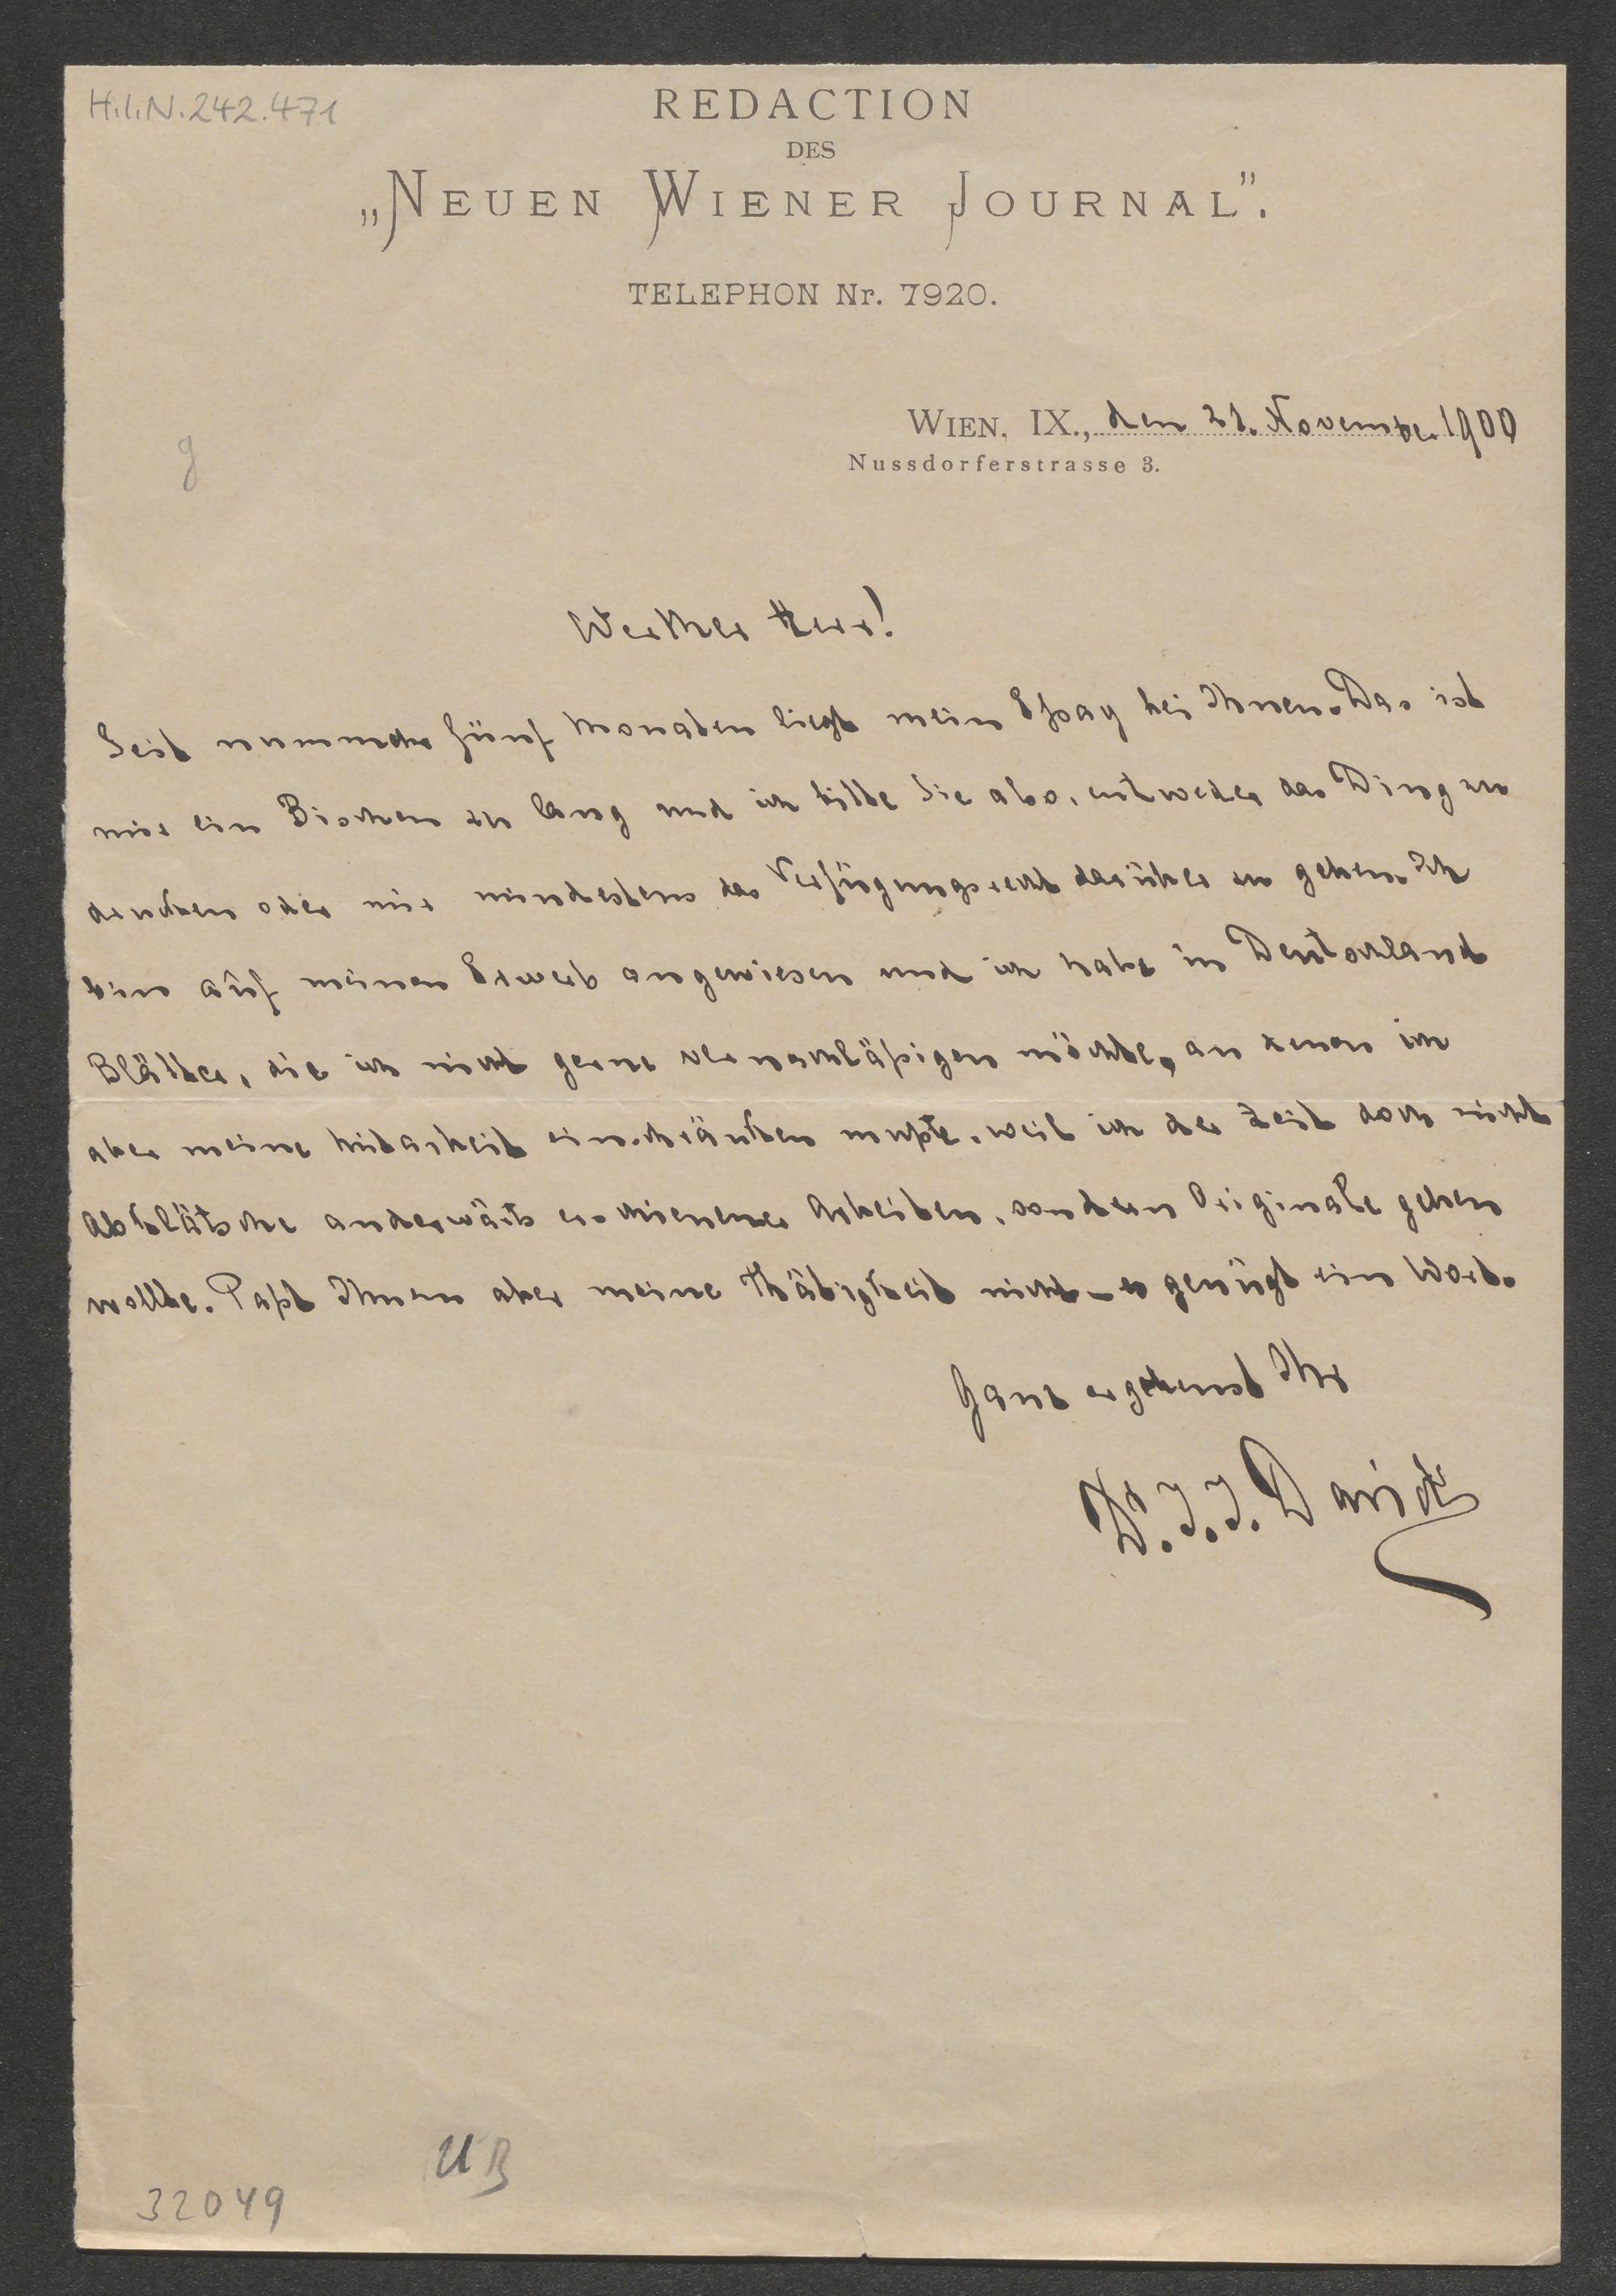 H.I.N. 242.471
REDACTION
DES
„NEUEN WIENER JOURNAL".
TELEPHON Nr. 7920.
WIEN, IX., den 21. November 1900
Nussdorferstrasse 3.
g
Werther Herr!
Seit nunmehr fünf Monaten liegt mein Essay bei Ihnen. Das ist
mir ein Bischen zu lang und ich bitte Sie also, entweder das Ding zu
drucken oder mir mindestens das Verfügungsrecht darüber zu geben. Ich
bin auf meinen Erwerb angewiesen und ich habe in Deutschland
Blätter, die ich nicht gerne vernachläßigen möchte, an denen ich
aber meine Mitarbeit einschränken mußte, weil ich der Zeit doch nicht
Abklätsche anderwärts erschienener Arbeiten, sondern Originale geben
wollte. Paßt Ihnen aber meine Thätigkeit nicht – es genügt ein Wort.
Ganz ergebenst Ihr
Dr. J. J. David
UB
32049